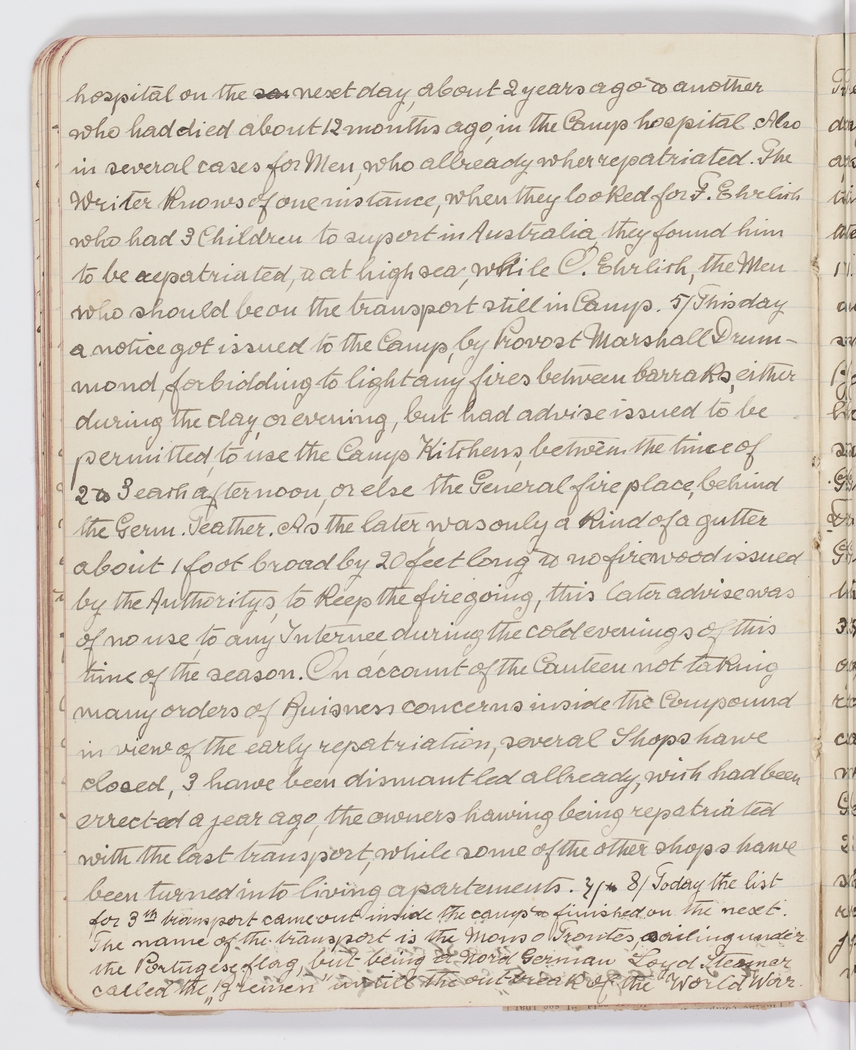 hospital on the next day, about 2 years ago & another
who had died about 12 months ago, in the Camp hospital. Also
in several cases for Men, who allready where repatriated. The
Writer knows of one instance, when they looked for F. Ehrlich
who had 3 Children to suport in Australia, they found him
to be repatriated, a at high sea, while O. Ehrlich, the Men
who should be on the transport still in Camp. 5/ This day
a notice got issued to the Camp, by Provost Marshall Drum-
mond, forbidding to light any fires between barraks, either
during the day, or evening, but had advise issued to be
permitted, to use the Camp Kitchens, between the time of
2 & 3 each afternoon, or else the General fire place, behind
the Germ. Teather. As the later, was only a kind of a gutter
about 1 foot broad by 20 feet long & no firewood issued
by the Authoritys, to keep the fire going, this later advise was
of no use, to any Internee during the cold evenings of this
time of the season. On account of the Canteen not taking
many orders of Buisness concerns inside the Compound
in view of the early repatriation, several Shops hawe
closed, 3 hawe been dismantled allready, wich had been
errected a year ago, the owners hawing being repatriated
with the last transport, while some of the other shops hawe
been turned into living apartements. 7/ & 8/ Today the list
for 3th transport came out inside the camp & finished on the next.
The name of the transport is the sailing under
the Portugese flag, but being a Nord German Loyd Steamer
called the "Bremen" untill the out-break of the World Warr.